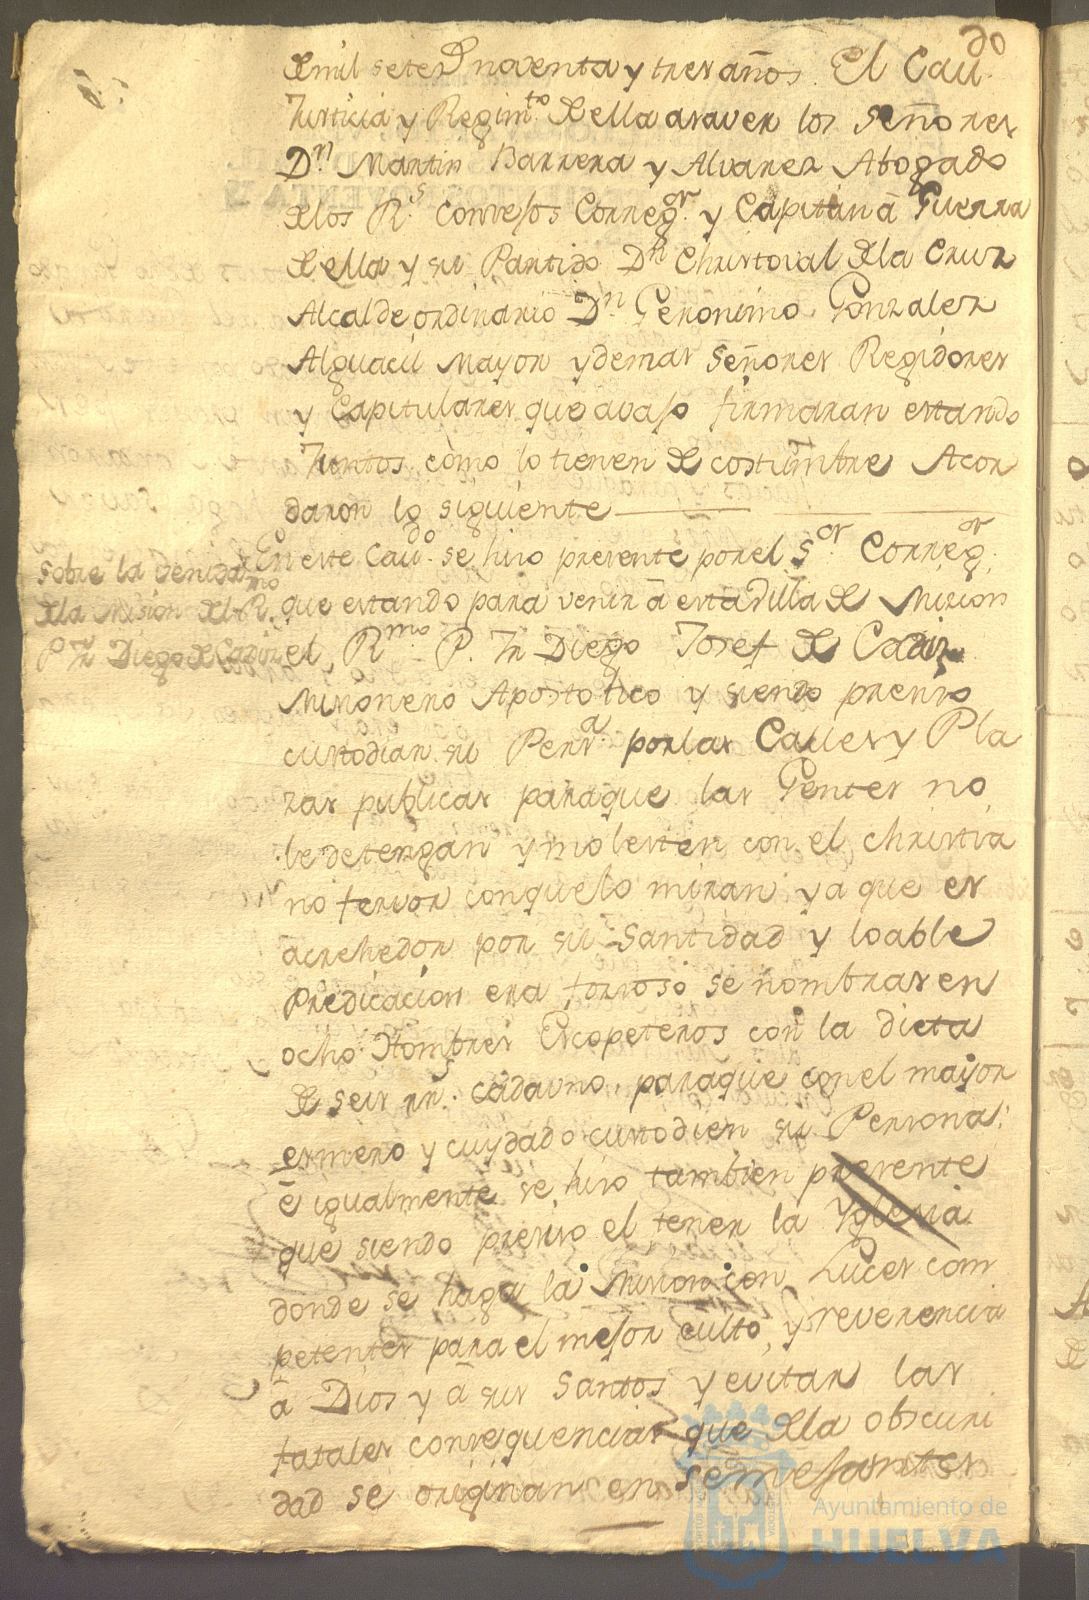 de mil setez.s noventa y tres años. El Cav.do
Justicia y Regim.to de ella asaver los Señores
D.n Martin Barrera y Alvarez Abogado
de los R.s Consejos Correg.or y Capitan â Guerra
de ella y su Partido D.n Christoval de la Cruz
Alcalde ordinario D.n Geronimo Gonzalez
Alguacil Mayor y demas Señores Regidores
y Capitulares que avajo firmaran estando
Juntos como lo tienen de costumbre Acor
daron lo siguiente
Sobre la Venida
de la Mision del R.mo
P. Fr. Diego de Cadiz
En este Cav.do se hizo presente por el S.or Correg.or
que estando para venir â esta Villa de Mision
el R.mo P. Fr. Diego Josef de Cadiz
Misionero Apostolico y siendo preciso
custodiar su Pers.a por las Calles y Pla
zas publicas para que las Gentes no
le detengan y molesten con el christia
no fervor con que lo miran ya que es
acrehedor por su Santidad y loable
Predicacion era forzoso se nombrasen
ocho Hombres Escopeteros con la dieta
de seis rr.s cada uno, para que con el mayor
esmero y cuydado custodien su Persona:
ê igualmente se hizo tambien presente
que siendo preciso el tener la Yglesia
donde se haga la Mision con Luces com
petentes para el mejor culto, y reverencia
â Dios y â sus Santos y evitar las
fatales consequencias que de la obscuri
dad se originan en semejantes
Ayuntamiento de
HUELVA